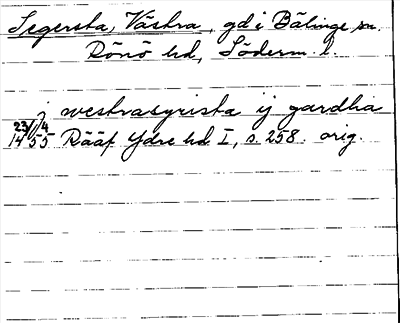 Segersta, Västra, gd i Bälinge sn.
Rönö hd, Söderm. l.
j westrasyrista ij gardha
23/4 1455 Rääf Ydre hd I, s. 258. orig.